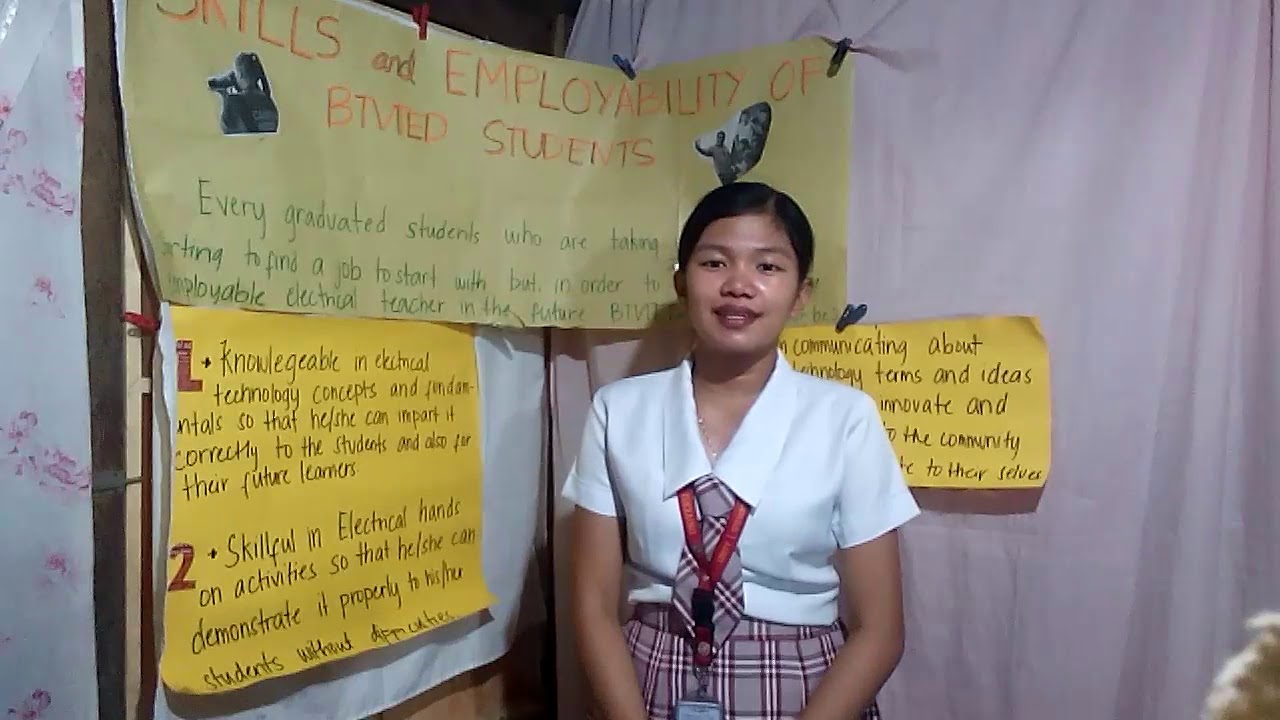 SKILLS and EMPLOYABILITY OF
BTVTED STUDENTS
Every graduated students who are taking
to find a job to start with but. in order to
employable electrical teacher in the future BTVT
1 • Knowlegeable in electrical
technology concepts and fundam-
entals so that he/she can impart it
correctly to the students and also for
their future learners
2 • Skillful in Electrical hands
on activities so that he/she can
demonstrate it properly to his/her
students without difficulties
communicating about
technology terms and ideas
innovate and
to the community
to their selves